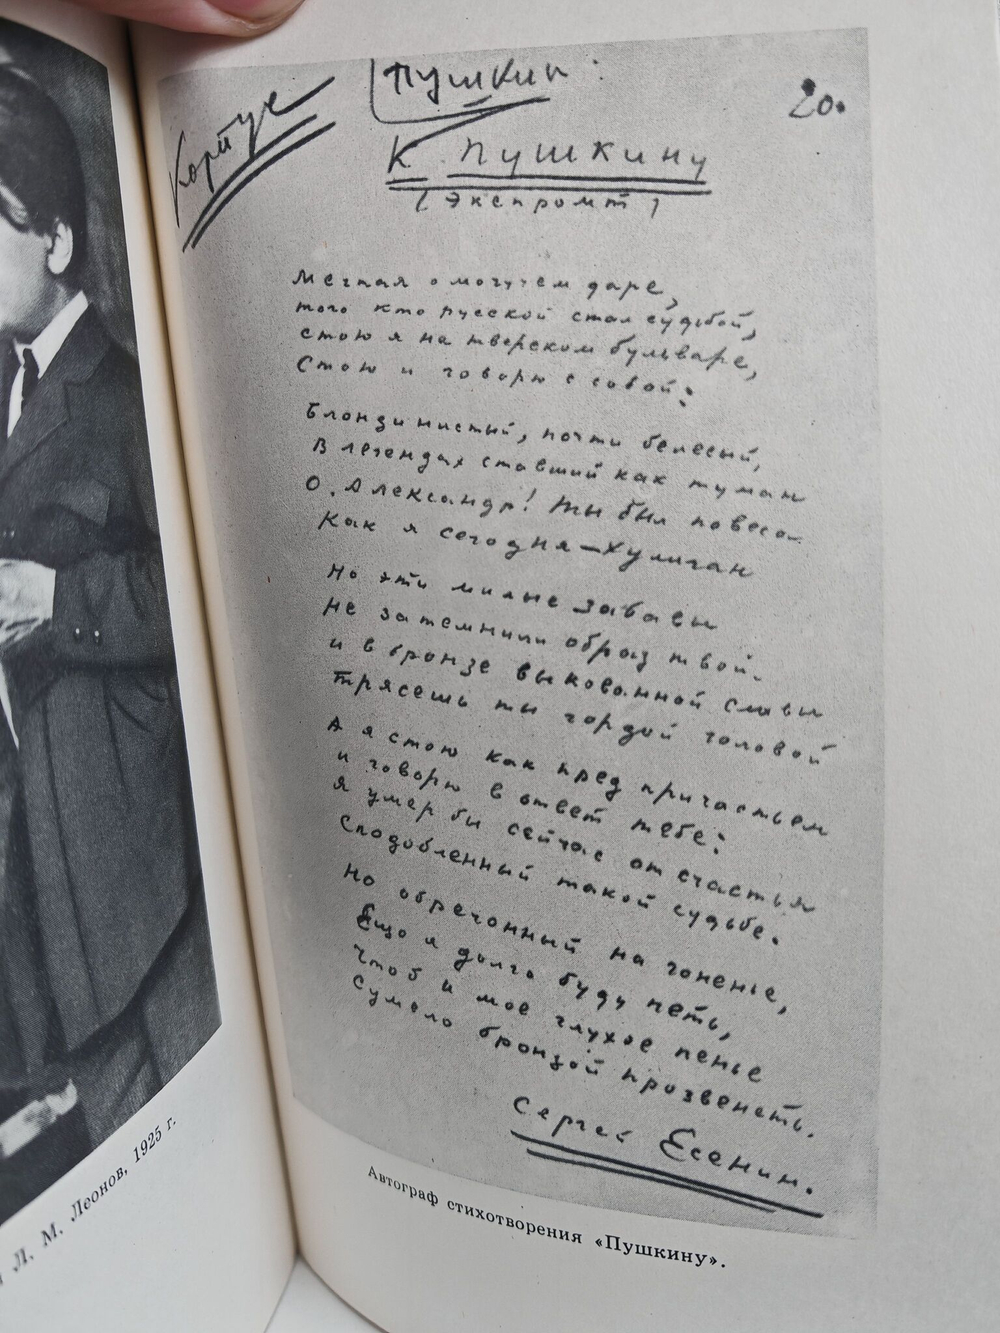 Корпус
Пушкин
20.
К Пушкину
(Экспромт)
Мечтая о могучем даре,
того кто русской стал судьбой,
стою я на тверском бульваре,
Стою и говорю с собой:
Блондинистый, почти белесый,
В легендах ставший как туман
О, Александр! Ты был повеса
Как я сегодня – хулиган
Но эти милые забавы
Не затемнили образ твой.
и в бронзе выкованной славы
Трясешь ты гордой головой
А я стою как пред причастьем
и говорю в ответ тебе:
я умер бы сейчас от счастья
Сподобленный такой судьбе.
Но обречонный на гоненье,
Ещо я долго буду петь,
Чтоб и мое глухое пенье
Сумело бронзой прозвенеть.
Сергей Есенин.
Л. М. Леонов, 1925 г.
Автограф стихотворения «Пушкину».